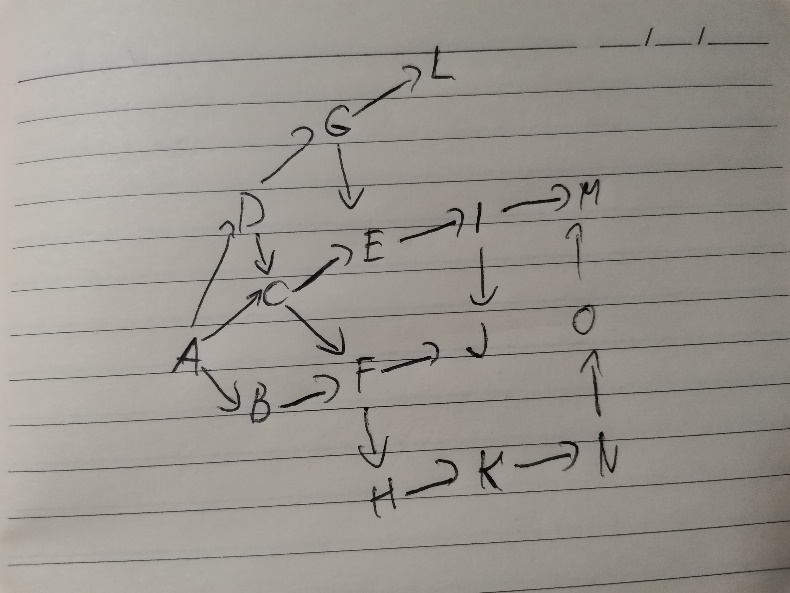 L
G
D E → I → M
C
A O
B → F → J
H → K → N